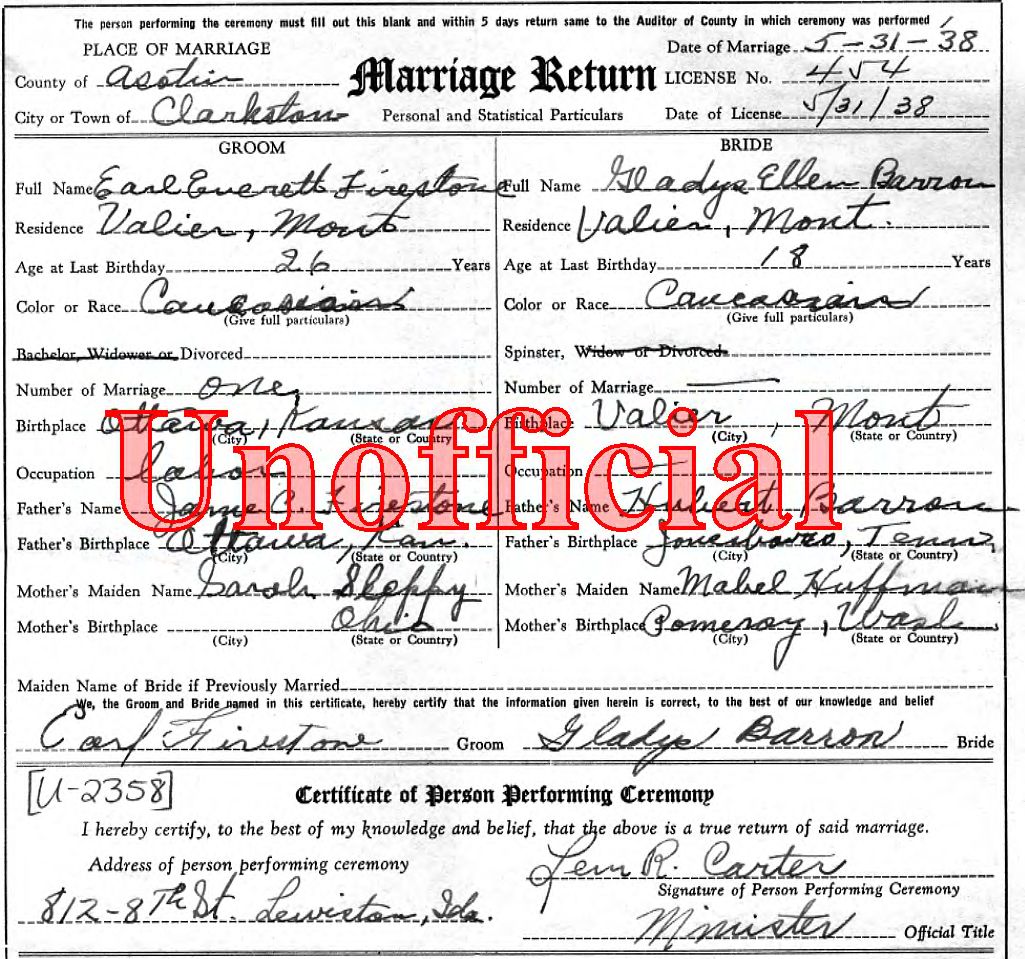 The person performing the ceremony must fill out this blank and within 5 days return same to the Auditor of County in which ceremony was performed
PLACE OF MARRIAGE
Date of Marriage 5-31-38
County of Asotin
Marriage Return
LICENSE No. 454
City or Town of Clarkston
Personal and Statistical Particulars
Date of License 5/31/38
GROOM
BRIDE
Full Name Earl Everett Firestone
Full Name Gladys Ellen Barron
Residence Valier, Mont
Residence Valier, Mont.
Age at Last Birthday 26 Years
Age at Last Birthday 18 Years
Color or Race Caucasian
Color or Race Caucasian
(Give full particulars)
(Give full particulars)
Bachelor, Widower or Divorced
Spinster, Widow or Divorced
Number of Marriage one
Number of Marriage —
Birthplace Ottawa, Kansas
Birthplace Valier, Mont
(City) (State or Country)
(City) (State or Country)
Unofficial
Occupation labor
Occupation —
Father's Name Jame C. Firestone
Father's Name Hubert Barron
Father's Birthplace Ottawa, Kan.
Father's Birthplace Jonesboro, Tenn
(City) (State or Country)
(City) (State or Country)
Mother's Maiden Name Sarah Sleppy
Mother's Maiden Name Mabel Huffman
Mother's Birthplace Ohio
Mother's Birthplace Pomeroy, Wash
(City) (State or Country)
(City) (State or Country)
Maiden Name of Bride if Previously Married
We, the Groom and Bride named in this certificate, hereby certify that the information given herein is correct, to the best of our knowledge and belief
Earl Firestone Groom
Gladys Barron Bride
[U-2358]
Certificate of Person Performing Ceremony
I hereby certify, to the best of my knowledge and belief, that the above is a true return of said marriage.
Address of person performing ceremony
Lem R. Carter
Signature of Person Performing Ceremony
812-8th St. Lewiston, Ida.
Minister Official Title